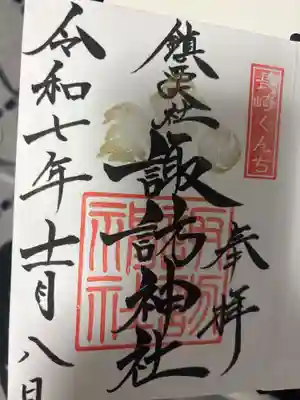 長崎くんち
奉拝
鎮西大社
諏訪神社
諏訪神社
令和七年十一月八日